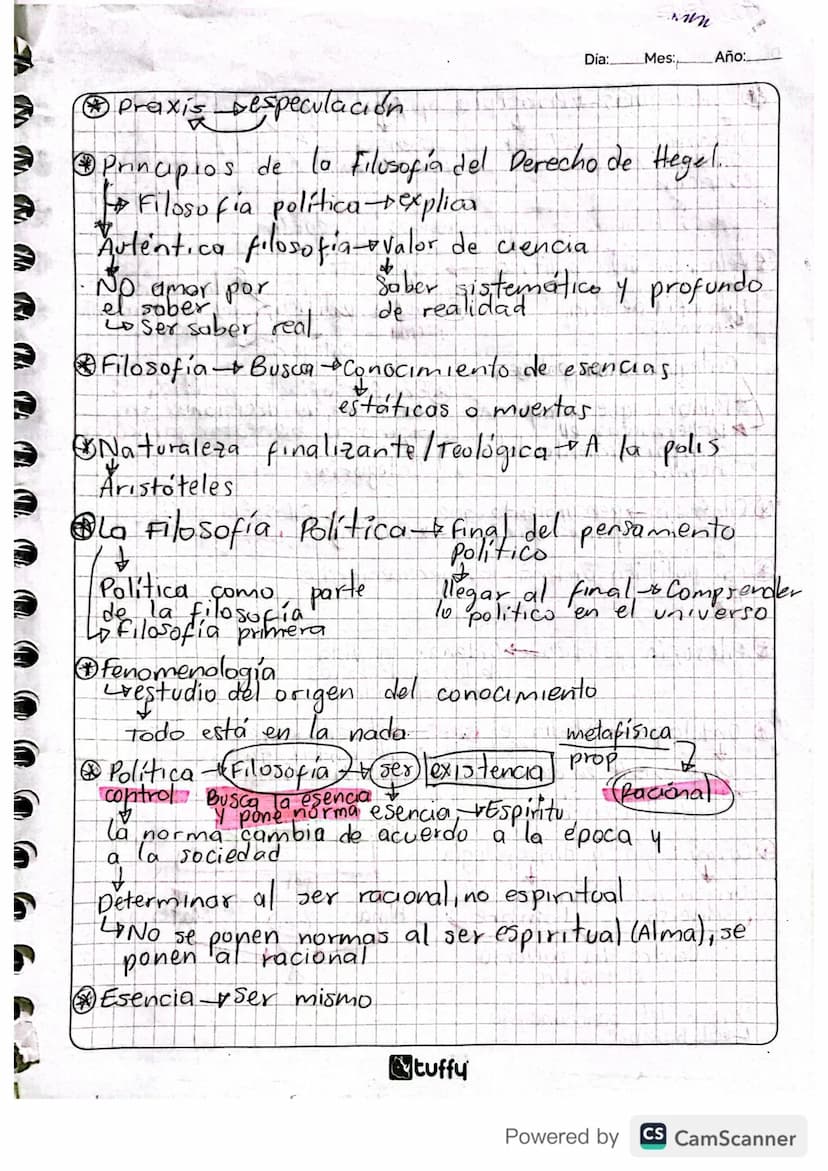 Día: Mes: Año:
⊛ Praxis → especulación
⊛ Principios de la Filosofía del Derecho de Hegel.
↳ Filosofía política → explica
Auténtica filosofía → Valor de ciencia
No amor por Saber sistemático y profundo
el saber de realidad
↳ Ser saber real
⊛ Filosofía → Busca → Conocimiento de esencias
↓
estáticos o muertas
⊛ Naturaleza finalizante/Teológica → A la polis
↓
Aristóteles
⊛ La Filosofía Política → final del pensamiento
político
Política como parte llegar al final → Comprender
de la filosofía lo político en el universo
↳ filosofía primera
⊛ Fenomenología
↳ estudio del origen del conocimiento
↓
Todo está en la nada.
metafísica
prop
⊛ Política → Filosofía → ser existencia Racional
control Busca la esencia
y pone norma esencia → Espíritu
La norma cambia de acuerdo a la época y
a la sociedad
↓
Determinar al ser racional, no espiritual
↳ No se ponen normas al ser espiritual (Alma), se
ponen al racional
⊛ Esencia → Ser mismo
tuffy
Powered by CS CamScanner